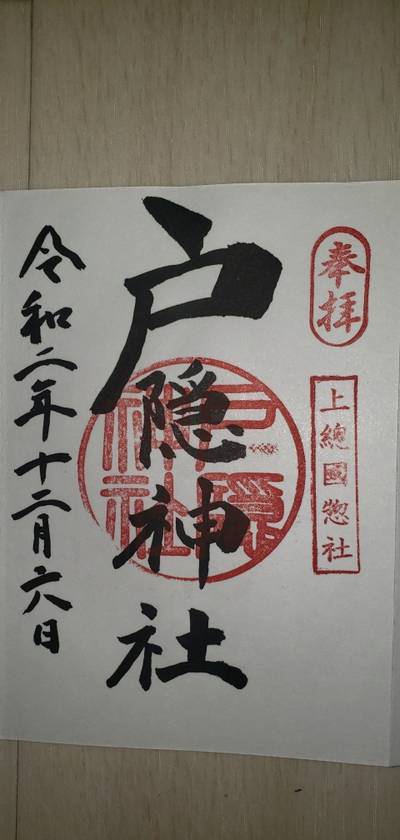 奉拝
上總國惣社
戸隠神社
戸隠神社
令和二年十二月六日